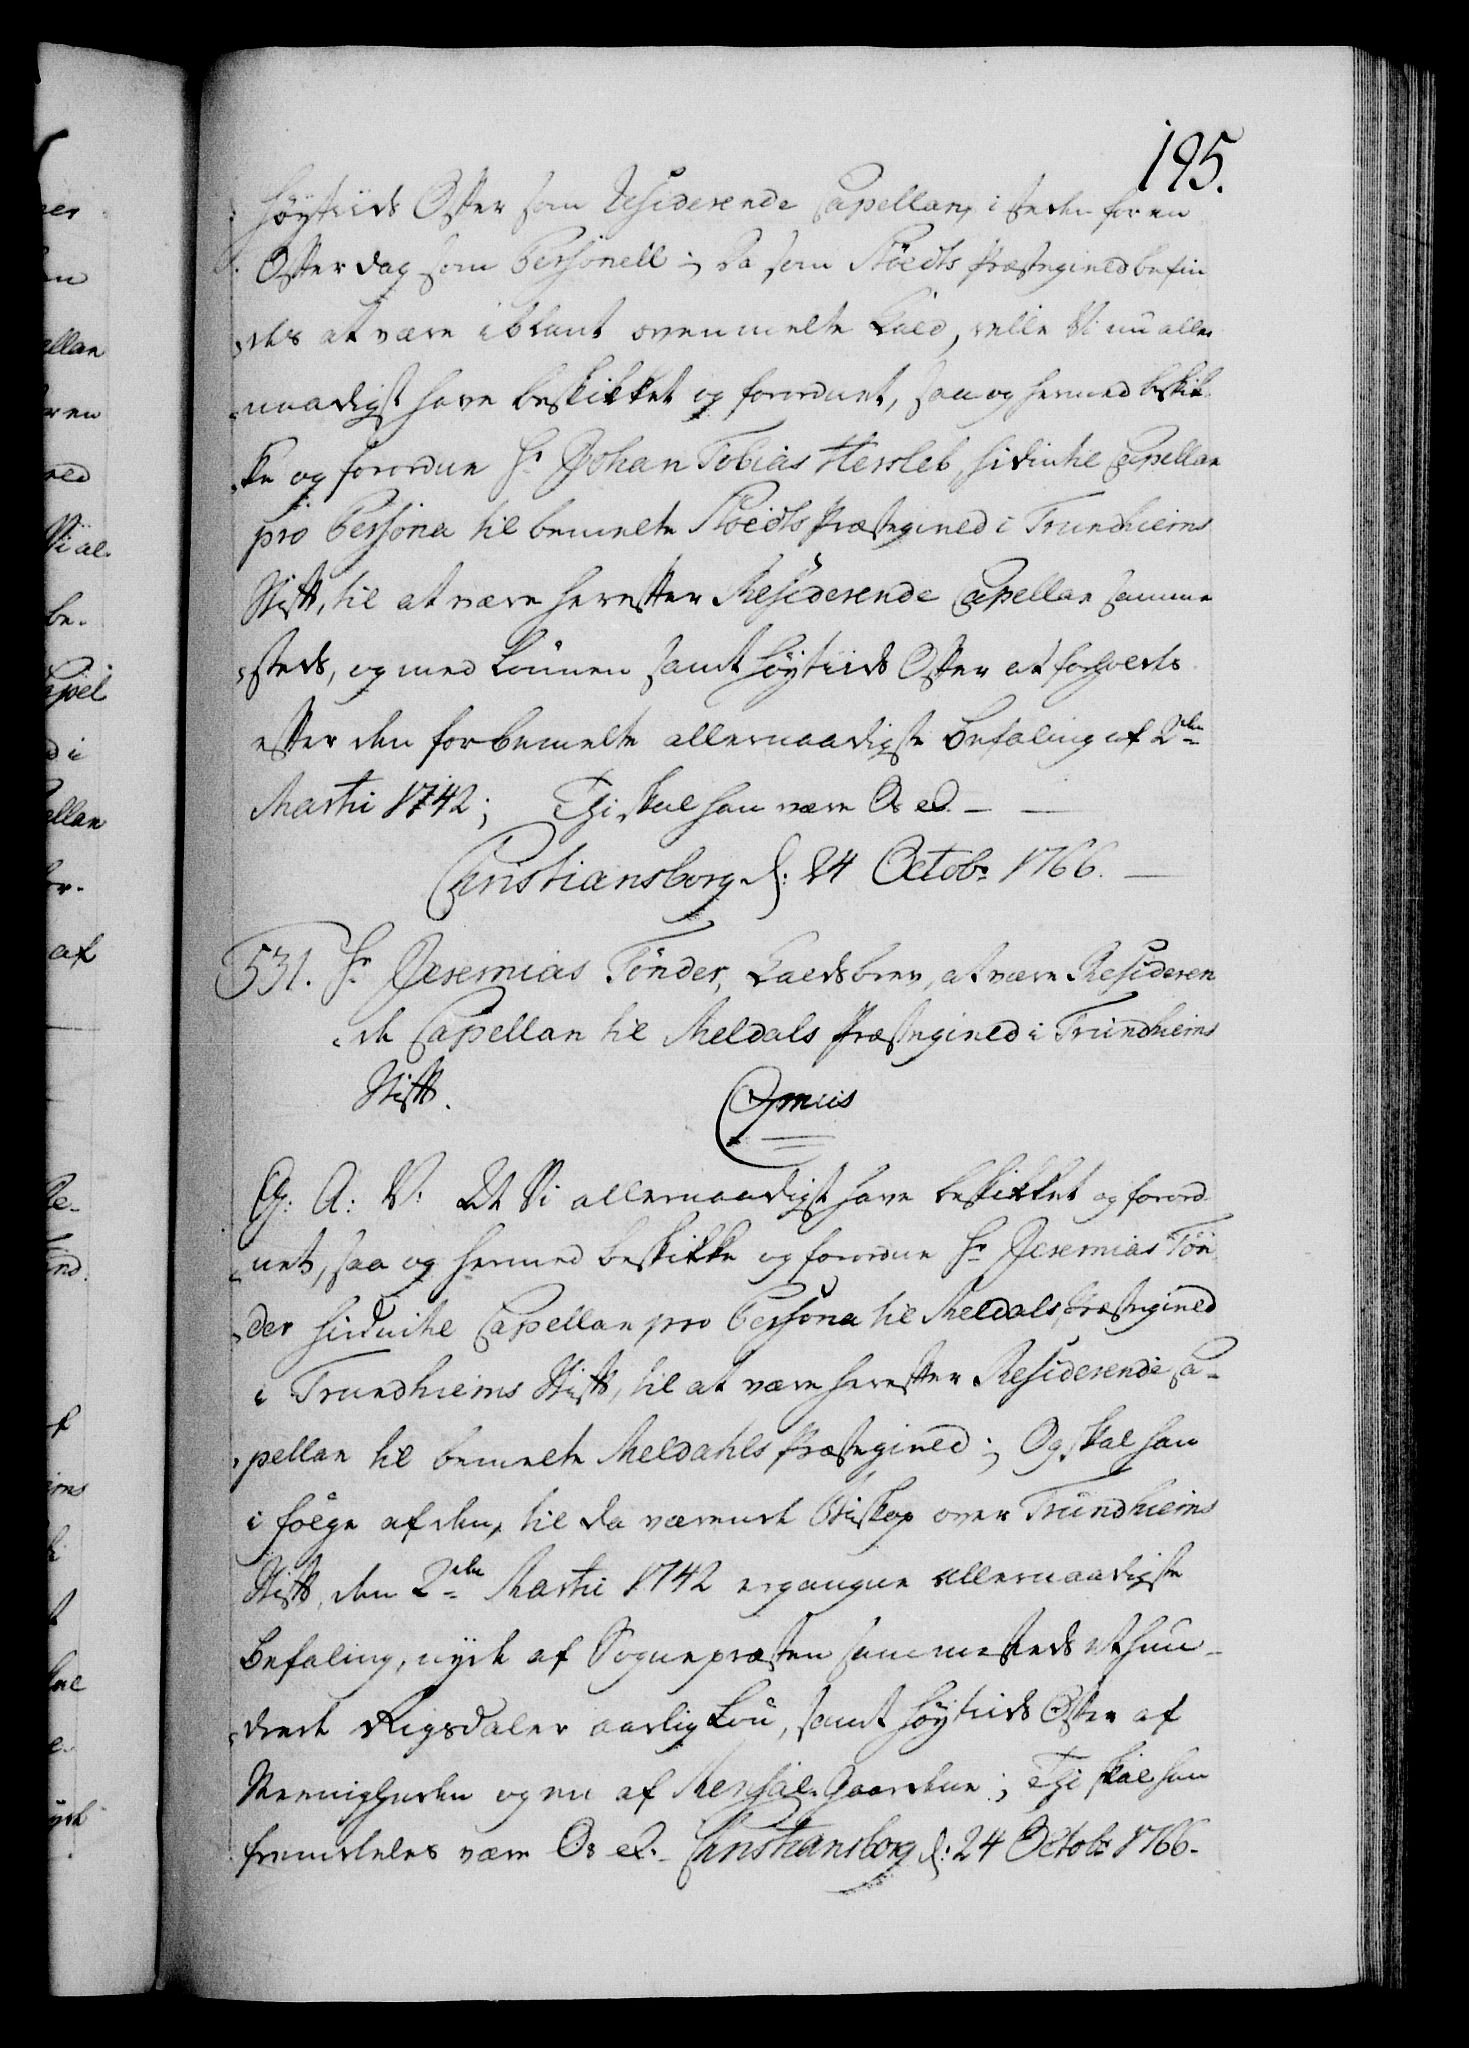 195.
Høytiids Offer som Residerende Capellan, i steden for en
Offerdag som Personell; Da som Stöeds Præstegield befin
des at være iblant ovenmelte Kald, ville Vi nu aller
naadigst have beskikket og forordnet, saa og hermed beskik
ke og forordne Hr Johan Tobias Hersleb, hidentil Capellan
pro Persona til bemelte Stöeds Præstegield i Trundhiems
Stift, til at være herefter Residerende Capellan samme
steds, og med Lönnen samt Høytiids Offer at forholdes
efter den forbemelte allernaadigste Befaling af 2den
Martii 1742; Thi skal han være Os etc. — —
Christiansborg d: 24 Octobr 1766. —
531. Hr Jeremias Tönder, Kaldsbrev, at være Resideren
de Capellan til Meldals Præstegield i Trundhiems
Stift.
C7mus
G: A: V: At Vi allernaadigst have beskikket og forord
net, saa og hermed beskikke og forordne Hr Jeremias Tön
der hidentil Capellan pro Persona til Meldals Præstegield
i Trundhiems Stift, til at være herefter Residerende Ca-
pellan til bemelte Meldahls Præstegield; Og skal han
i fölge af den, til da værende Biskop over Trundhiems
Stift, den 2den Martii 1742 ergangne allernaadigste
Befaling, nyde af Sognepræsten sammesteds et hun-
drede Rigsdaler aarlig Lön, samt Høytiids Offer af
Menigheden og en af Mensal Gaardene; Thi skal han
fremdeles være Os etc. Christiansborg d: 24 Octobr 1766.